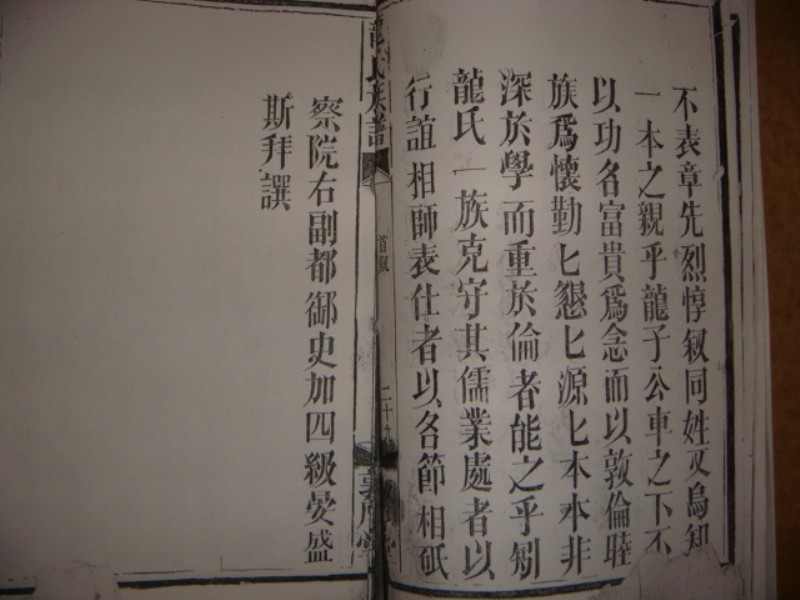 不表章先烈惇叙同姓又烏知
一本之親乎龍子公車之下不
以功名富貴爲念而以敦倫睦
族爲懷勤匕懇匕源匕本本非
深於學而重於倫者能之乎矧
龍氏一族克守其儒業處者以
行誼相師表仕者以各節相砥
龍氏族譜
首叙
二十九
敦厚堂
察院右副都御史加四級晏盛
斯拜譔